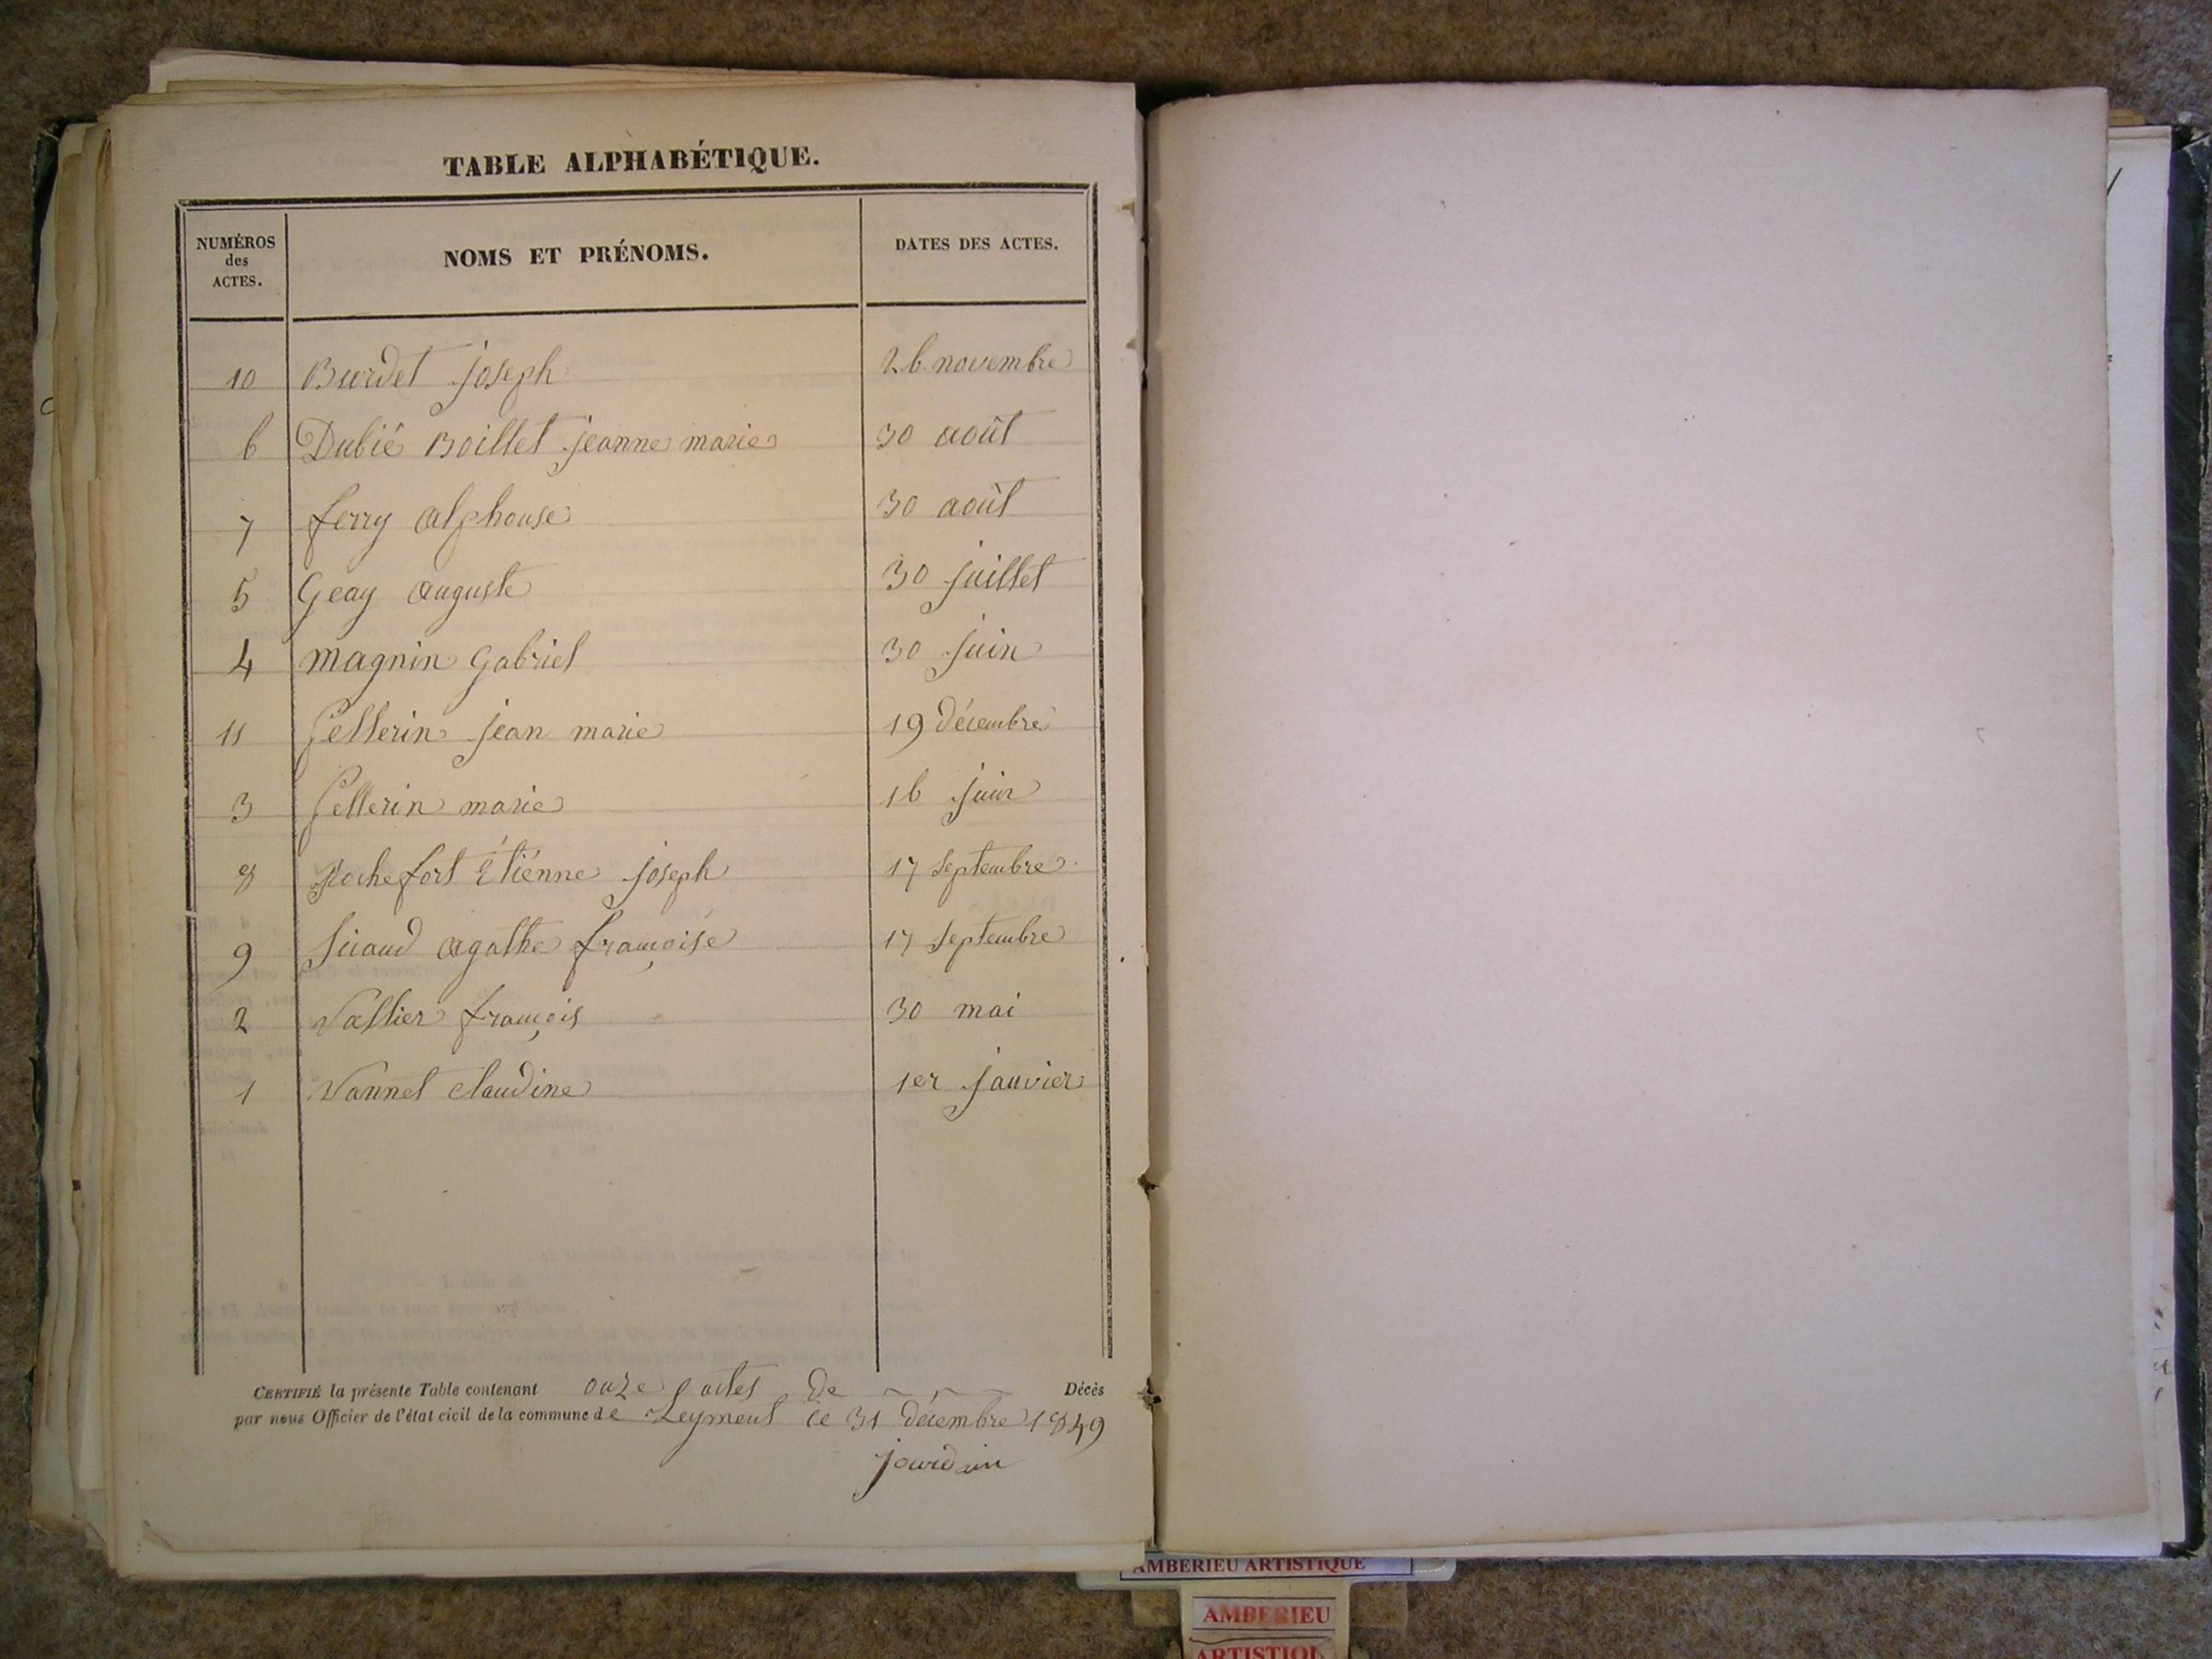 TABLE ALPHABÉTIQUE.
NUMÉROS des ACTES. NOMS ET PRÉNOMS. DATES DES ACTES.
10 Burdet joseph 26 novembre
6 Dubié Boillet jeanne marie 30 août
7 ferry alphonse 30 août
5 Geay auguste 30 juillet
4 magnin Gabriel 30 juin
11 Pellerin jean marie 19 décembre
3 Pellerin marie 16 juin
8 Rochefort Étienne joseph 17 Septembre
9 Siraud agathe françoise 17 Septembre
2 Vallier françois 30 mai
1 Vannet Claudine 1er janvier
CERTIFIÉ la présente Table contenant onze actes de Décès
par nous Officier de l'état civil de la commune de Leyment le 31 décembre 1849
jourdain
AMBERIEU ARTISTIQUE
AMBERIEU